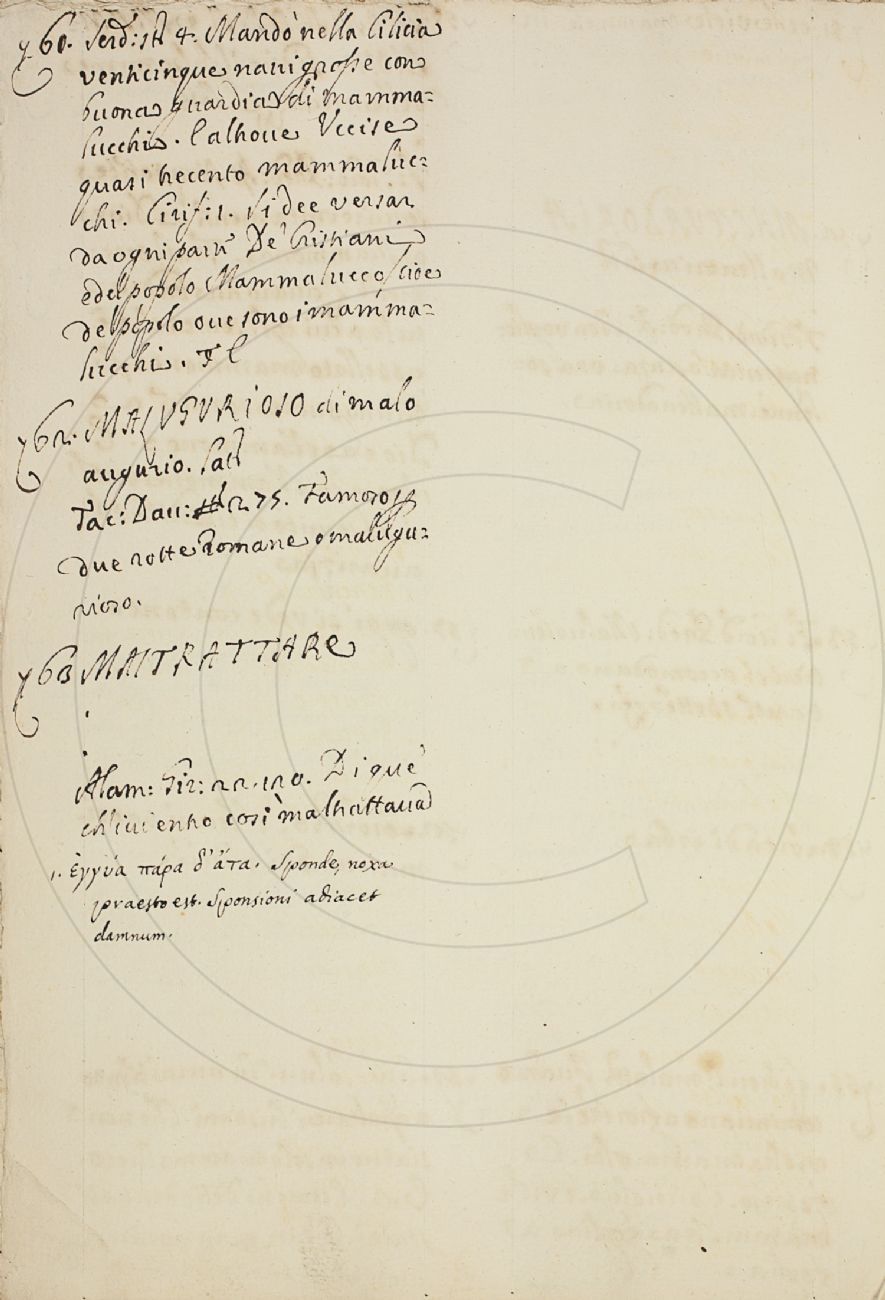 y60. Serd: st 4. Mandò nella Cilicia
venticinque naui grosse con
buona guardia di mamma=
lucchi. Ealtroue Vccise
quasi trecento mammaluc=
chi. Cirif: 1. Si dee versar
da ogni parte De' Cristiani
e del popolo Mammalucco, cioe
del popolo oue sono i mamma=
lucchi. Fl
y62. MALVGVRIOSO di malo
augurio. Lat
Tac: Dau: 275. Famoso p
due rotte Romane e malugu=
rioso.
y63 MALTRATTARE
Alam: Gir: 22. 120. Di què
ch'iui entro così maltrattaua
1. ἐγγύα πάρα δ' ἄτα. Sponde, noxa
praesto est. Sponsioni adiacet
damnum.